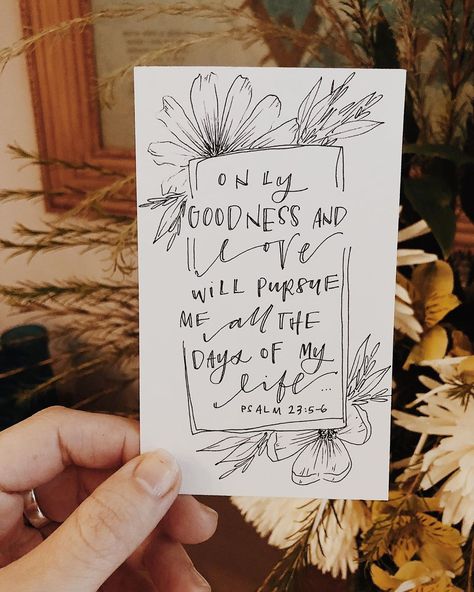 ONLY
GOODNESS AND
love
WILL PURSUE
ME all THE
DAYS OF MY
life...
PSALM 23:5-6